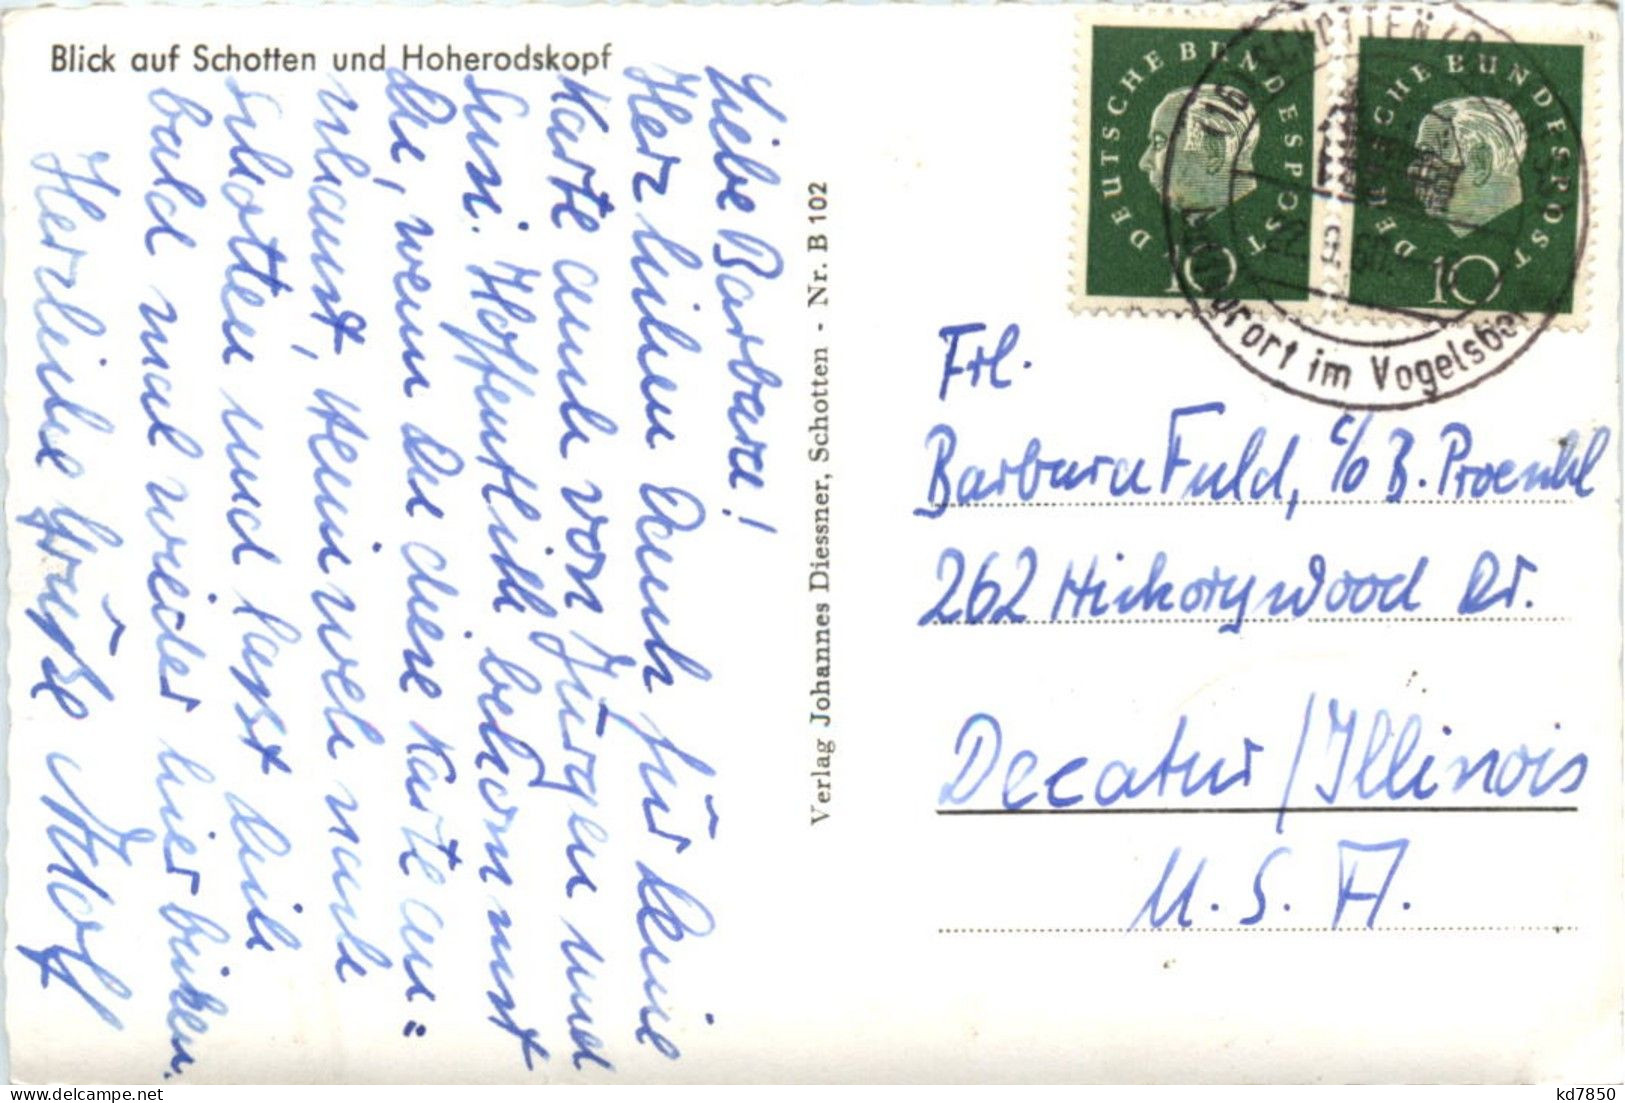 Blick auf Schotten und Hoherodskopf
Liebe Barbara!
Herzlichen Dank für Deine
Karte auch von Jürgen und
Susi. Hoffentlich bekommst
Du, wenn Du diese Karte an=
schaust, Heimweh nach
Schotten und läßt Dich
bald mal wieder hier blicken.
Herzliche Grüße Adolf
Verlag Johannes Diessner, Schotten - Nr. B 102
DEUTSCHE BUNDESPOST
10
DEUTSCHE BUNDESPOST
10
(16) SCHOTTEN
22.9.60
Luftkurort im Vogelsberg
Frl.
Barbara Fuld, c/o B.
262 Hickorywood Dr.
Decatur/Illinois
U.S.A.
kd7850